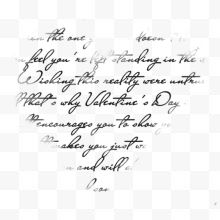 in the one doesn't
feel you're left standing in the
Wishing this reality were untrue
that's why Valentine's Day
encourages you to show
makes you just
and will